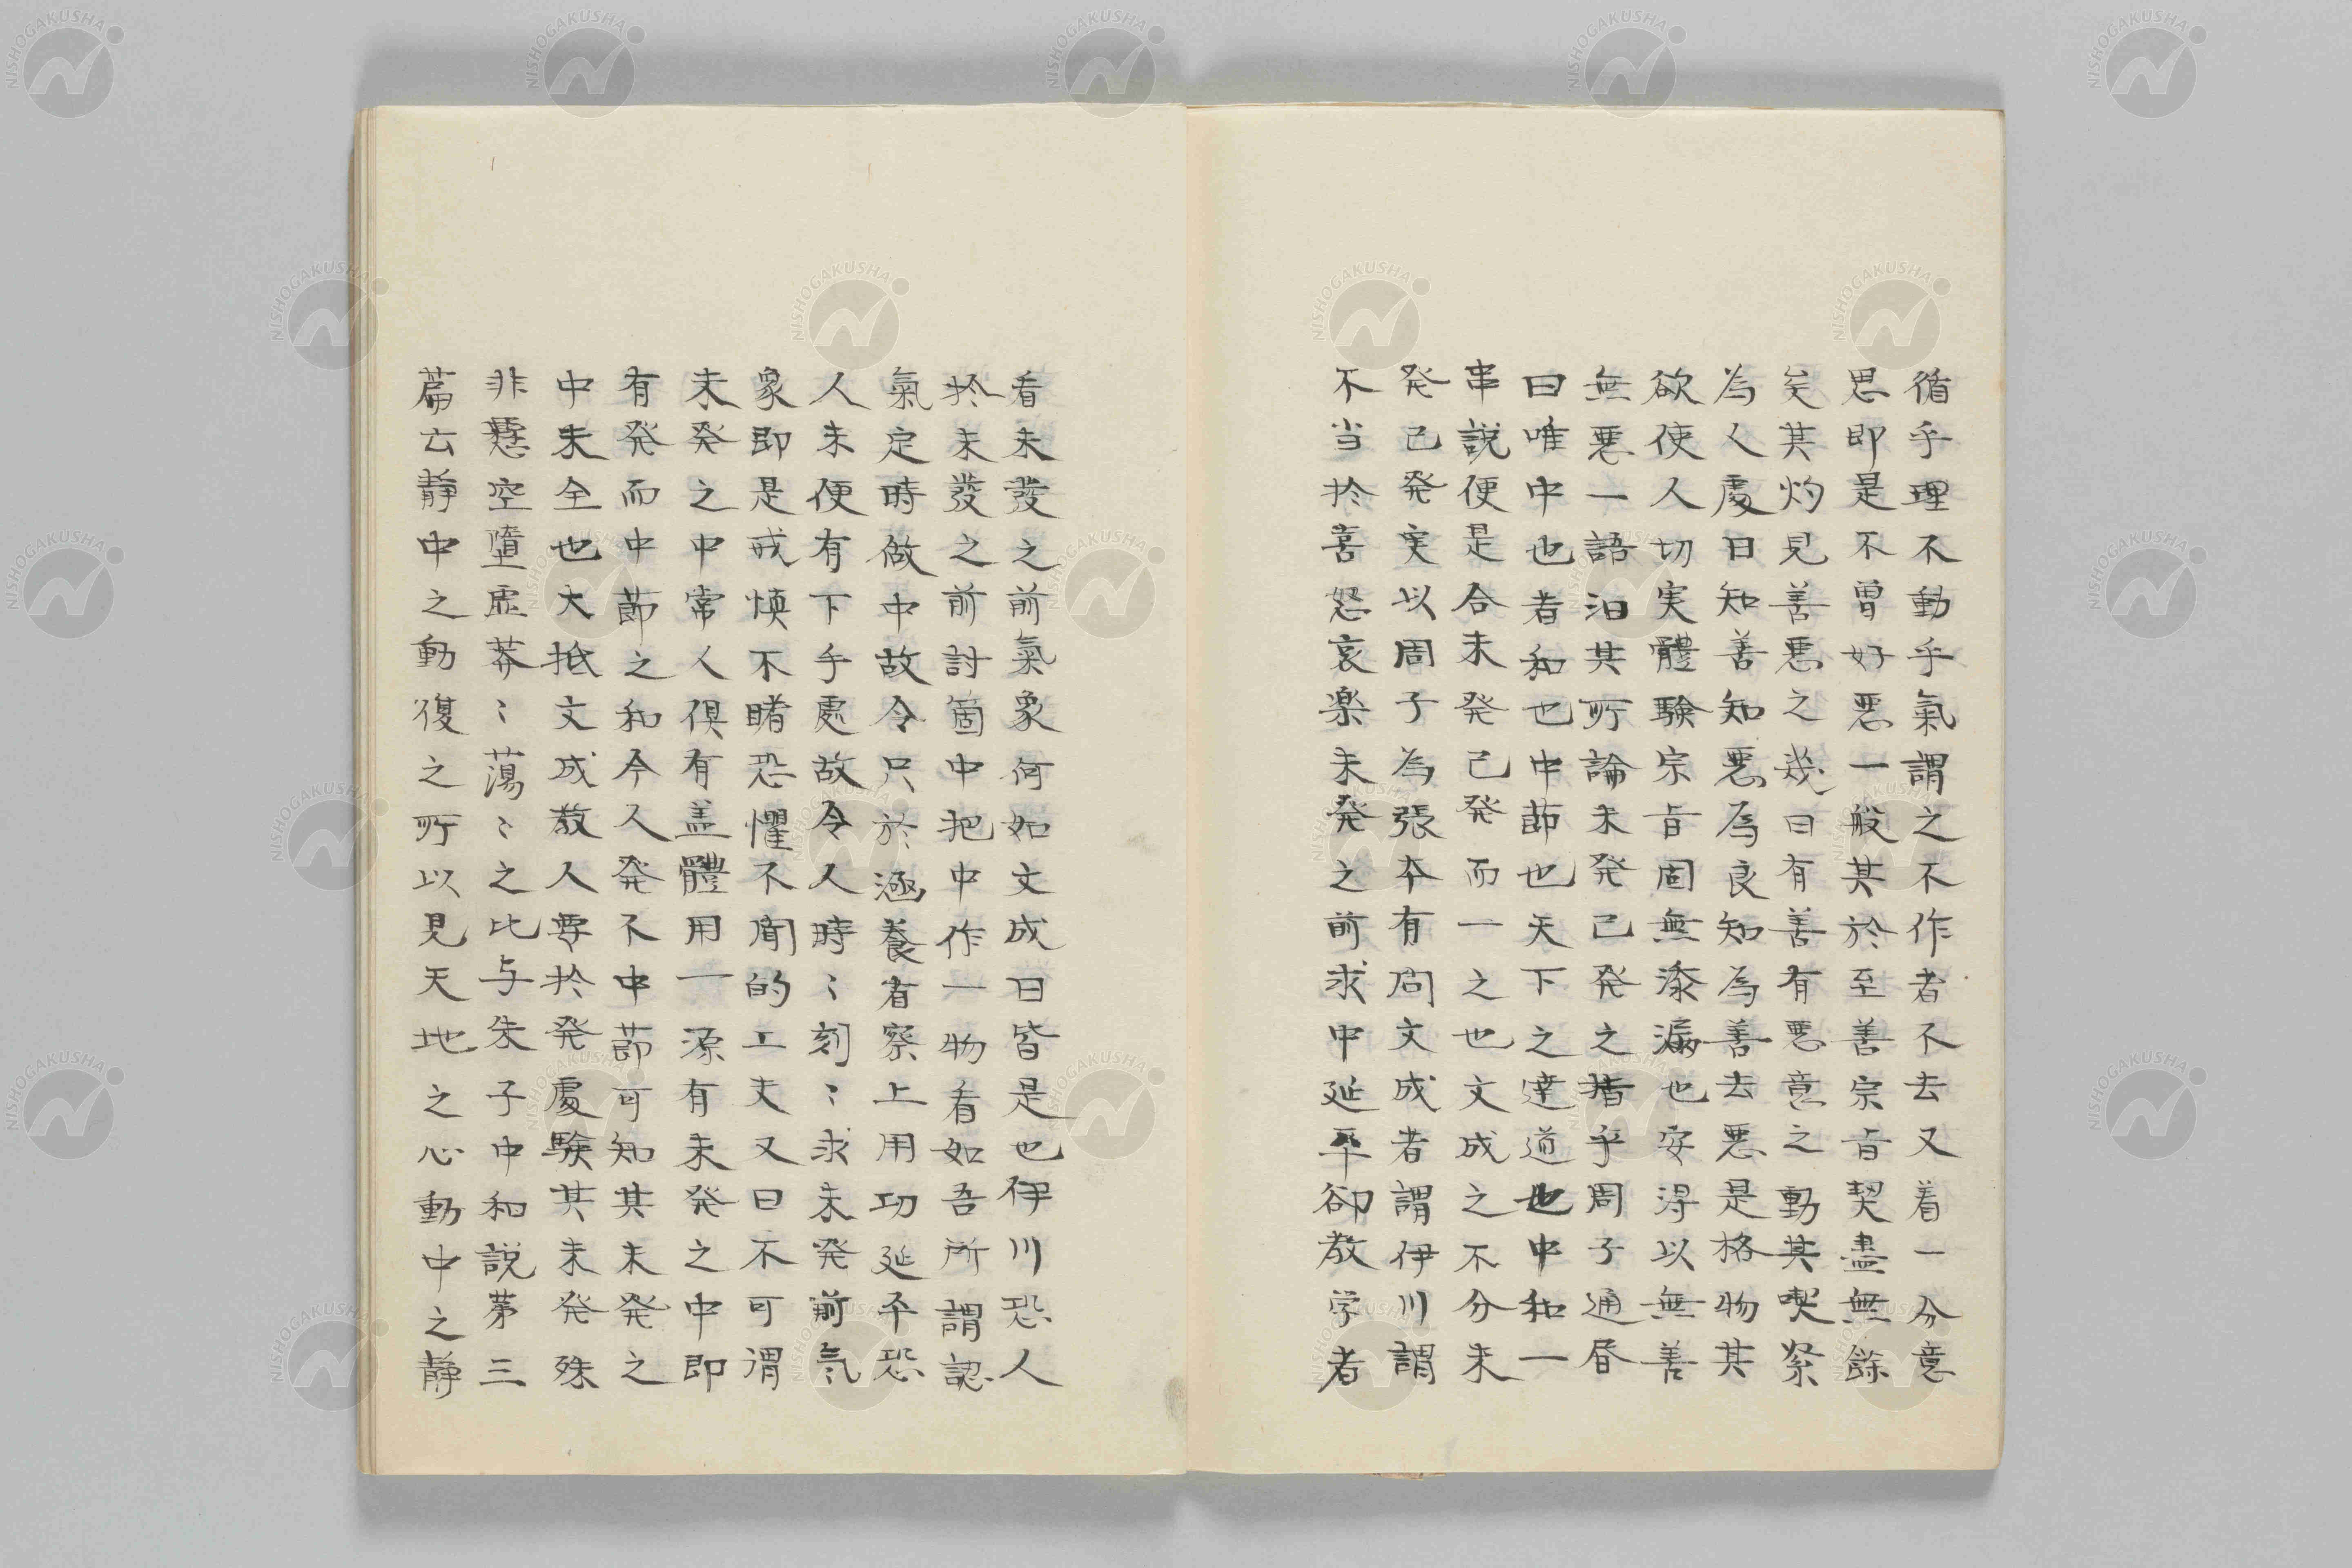 循乎理不動乎氣謂之不作者不去又着一分意
思即是不曽好悪一般其於至善宗旨契盡無餘
矣其灼見善悪之幾曰有善有悪意之動其喫緊
為人處曰知善知悪為良知為善去悪是格物其
欲使人切実體験宗旨固無滲漏也安淂以無善
無悪一語汩其所論未発已発之措乎周子通昏
曰唯中也者和也中節也天下之達道也中和一
串説便是合未発已発而一之也文成之不分未
発已発実以周子為張本有問文成者謂伊川謂
不当於喜怒哀楽未発之前求中延平卻教学者
看未發之前氣象何如文成曰皆是也伊川恐人
於未發之前討箇中把中作一物看如吾所謂認
氣定時做中故令只於涵養省察上用功延平恐
人未便有下手處故令人時〻刻〻求未発前気
象即是戒慎不睹恐懼不聞的工夫又曰不可謂
未発之中常人俱有盖體用一源有未発之中即
有発而中節之和今人発不中節可知其未発之
中未全也大抵文成教人要於発處験其未発殊
非懸空墮虚莽〻蕩〻之比与朱子中和説苐三
篇云静中之動復之所以見天地之心動中之静